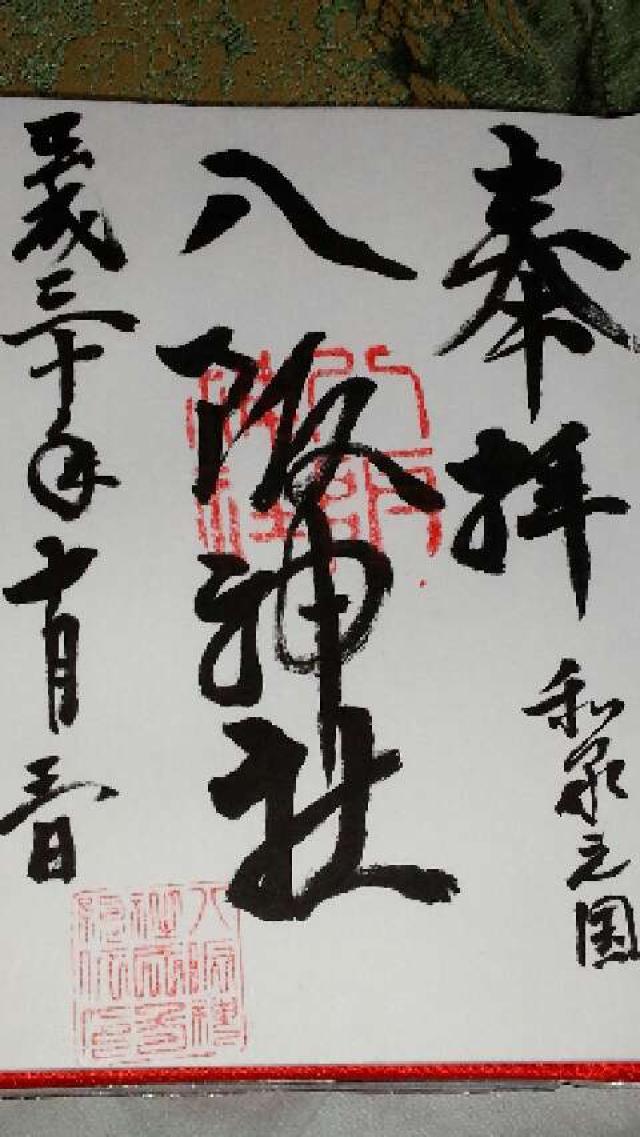 奉拝
和泉之国
八阪神社
八阪
神社
平成三十年十月三日